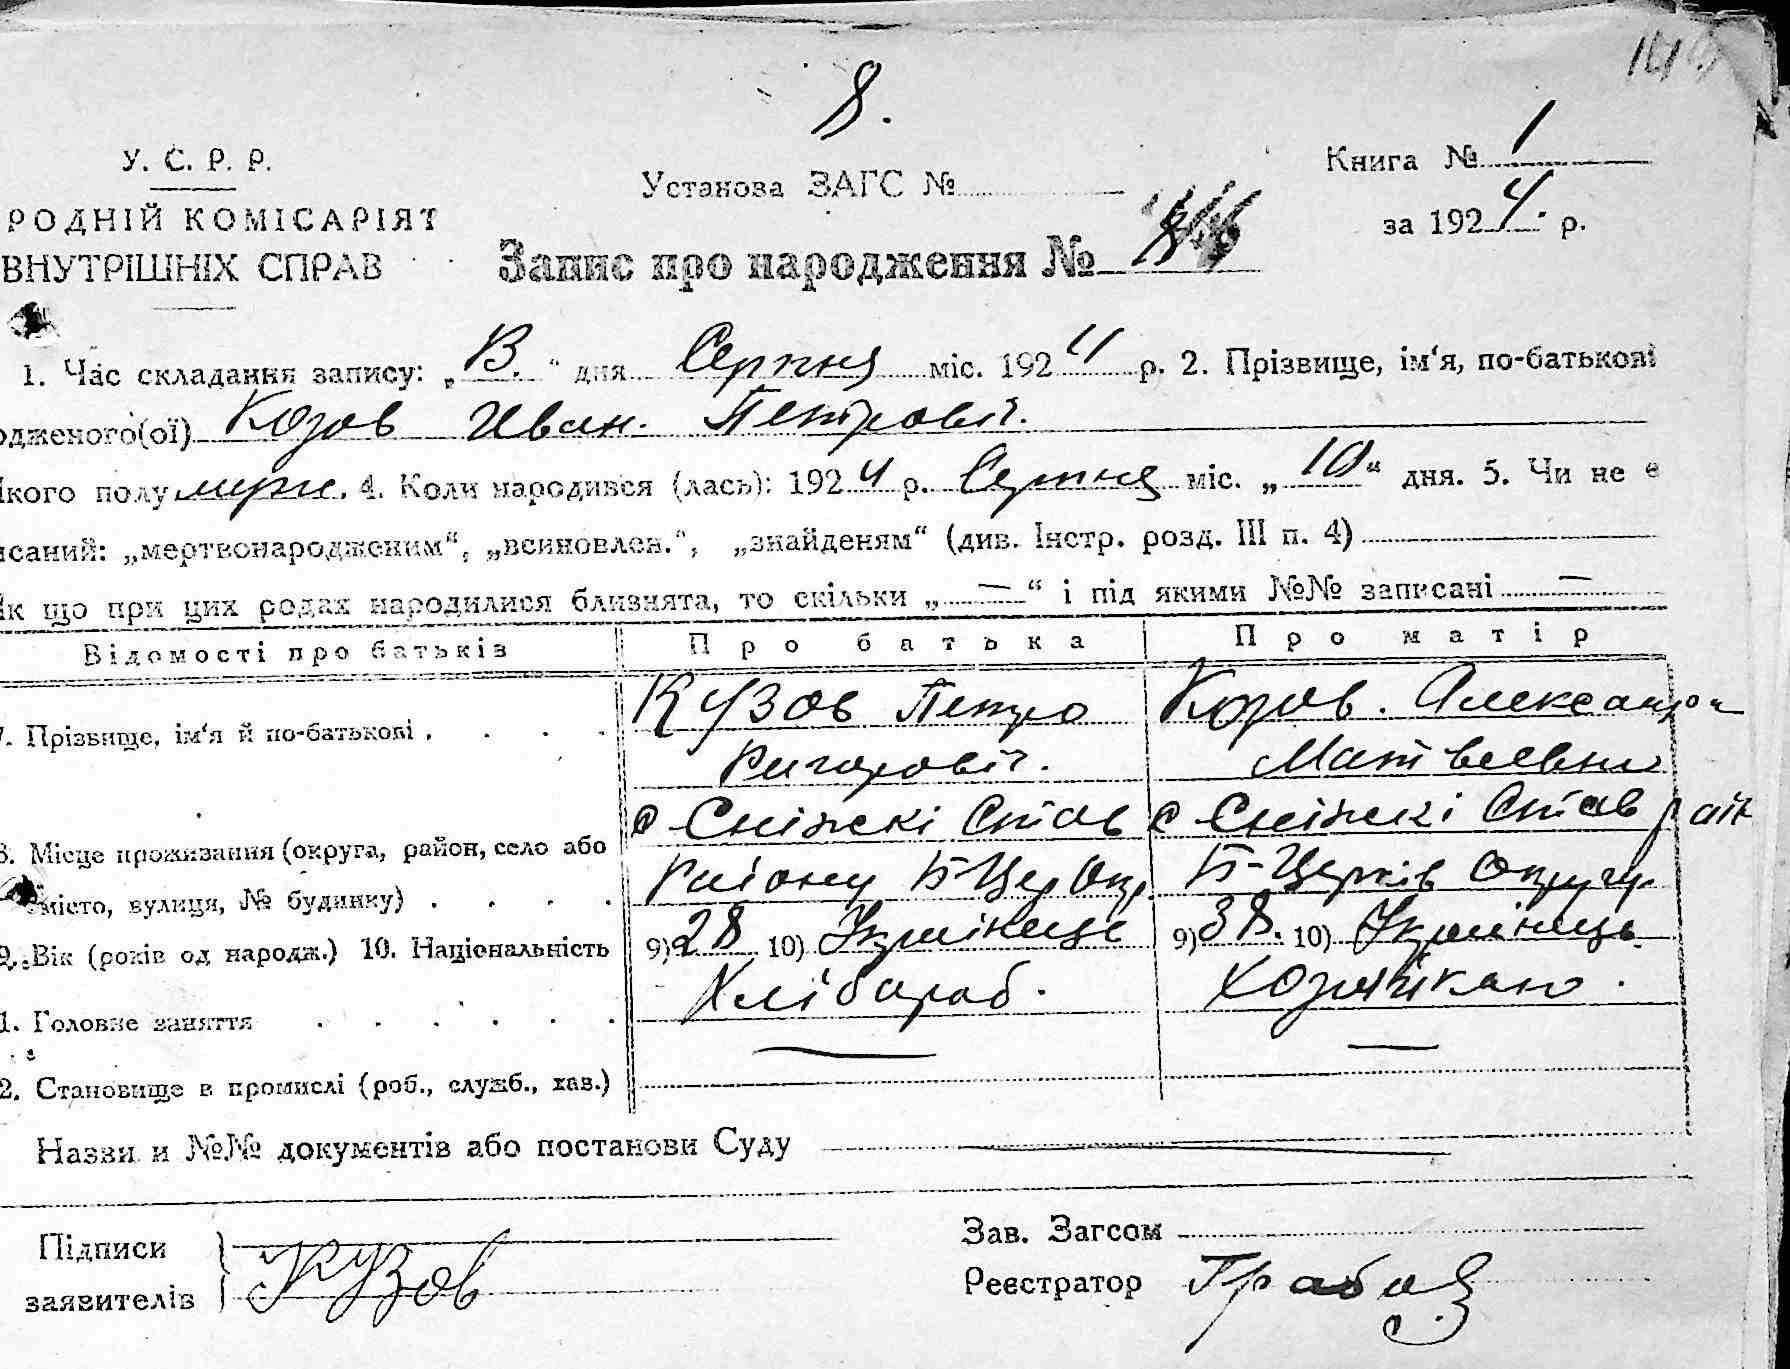 8.
У. С. Р. Р.
РОДНІЙ КОМІСАРІЯТ
ВНУТРІШНІХ СПРАВ
Установа ЗАГС №
Книга № 1
за 1924. р.
Запис про народження №
1. Час складання запису: „В.“ дня Серпня міс. 1924 р. 2. Прізвище, ім‘я, по-батькові
одженого(ої) Козов Иван. Петровіч.
Якого полу муж. 4. Коли народився (лась): 1924 р. Серпня міс. „10“ дня. 5. Чи не є
исаний: „мертвонародженим“, „всиновлен.“, „знайденям“ (див. Інстр. розд. III п. 4)
Як що при цих родах народилися близнята, то скільки „—“ і під якими №№ записані —
Відомості про батьків Про батька Про матір
7. Прізвище, ім‘я й по-батькові . . . . Кузов Петро Козов. Александра
Ригоровіч. Матвеевна
с Сніжскі Став с Сніжскі Став рай
8. Місце проживання (округа, район, село або
місто, вулиця, № будинку) . . . . Раіону Б-Цер Окр. Б-Церків Округи
9. Вік (років од народж.) 10. Національність 9) 28 10) Українець 9) 38. 10) Українець
1. Головне заняття . . . . . . Хлібороб. Хозяйкаю.
2. Становище в промислі (роб., служб., хаз.) — —
Назви и №№ документів або постанови Суду
Підписи
заявителів Кузов
Зав. Загсом
Реєстратор